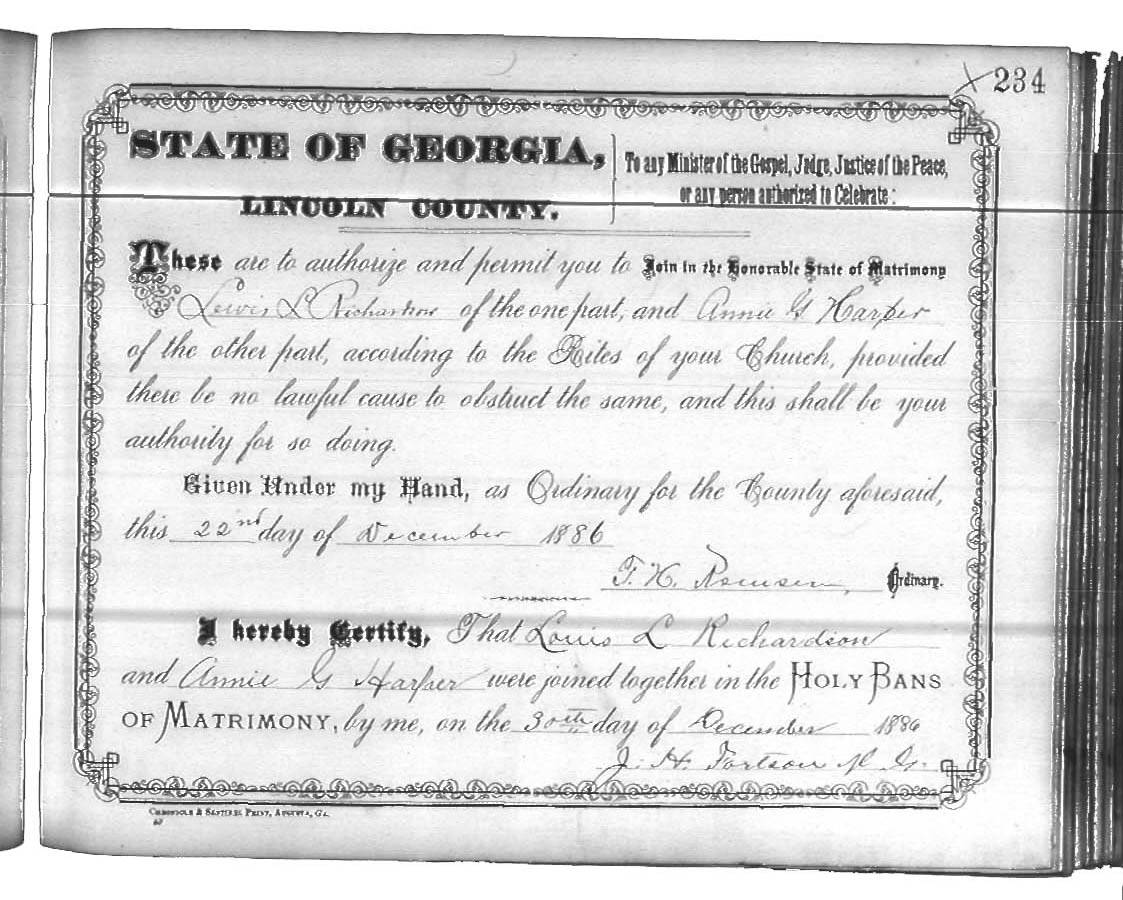 234
STATE OF GEORGIA,
LINCOLN COUNTY.
To any Minister of the Gospel, Judge, Justice of the Peace,
or any person authorized to Celebrate:
These are to authorize and permit you to Join in the Honorable State of Matrimony
Lewis L Richardson of the one part, and Annie G Harper
of the other part, according to the Rites of your Church, provided
there be no lawful cause to obstruct the same, and this shall be your
authority for so doing.
Given Under my Hand, as Ordinary for the County aforesaid,
this 22nd day of December 1886
T. H. Remsen, Ordinary.
I hereby Certify, That Louis L Richardson
and Annie G Harper were joined together in the HOLY BANS
OF MATRIMONY, by me, on the 30th day of December 1886
J. H. Fortson M G.
CHRONICLE & SENTINEL PRINT, AUGUSTA, GA.